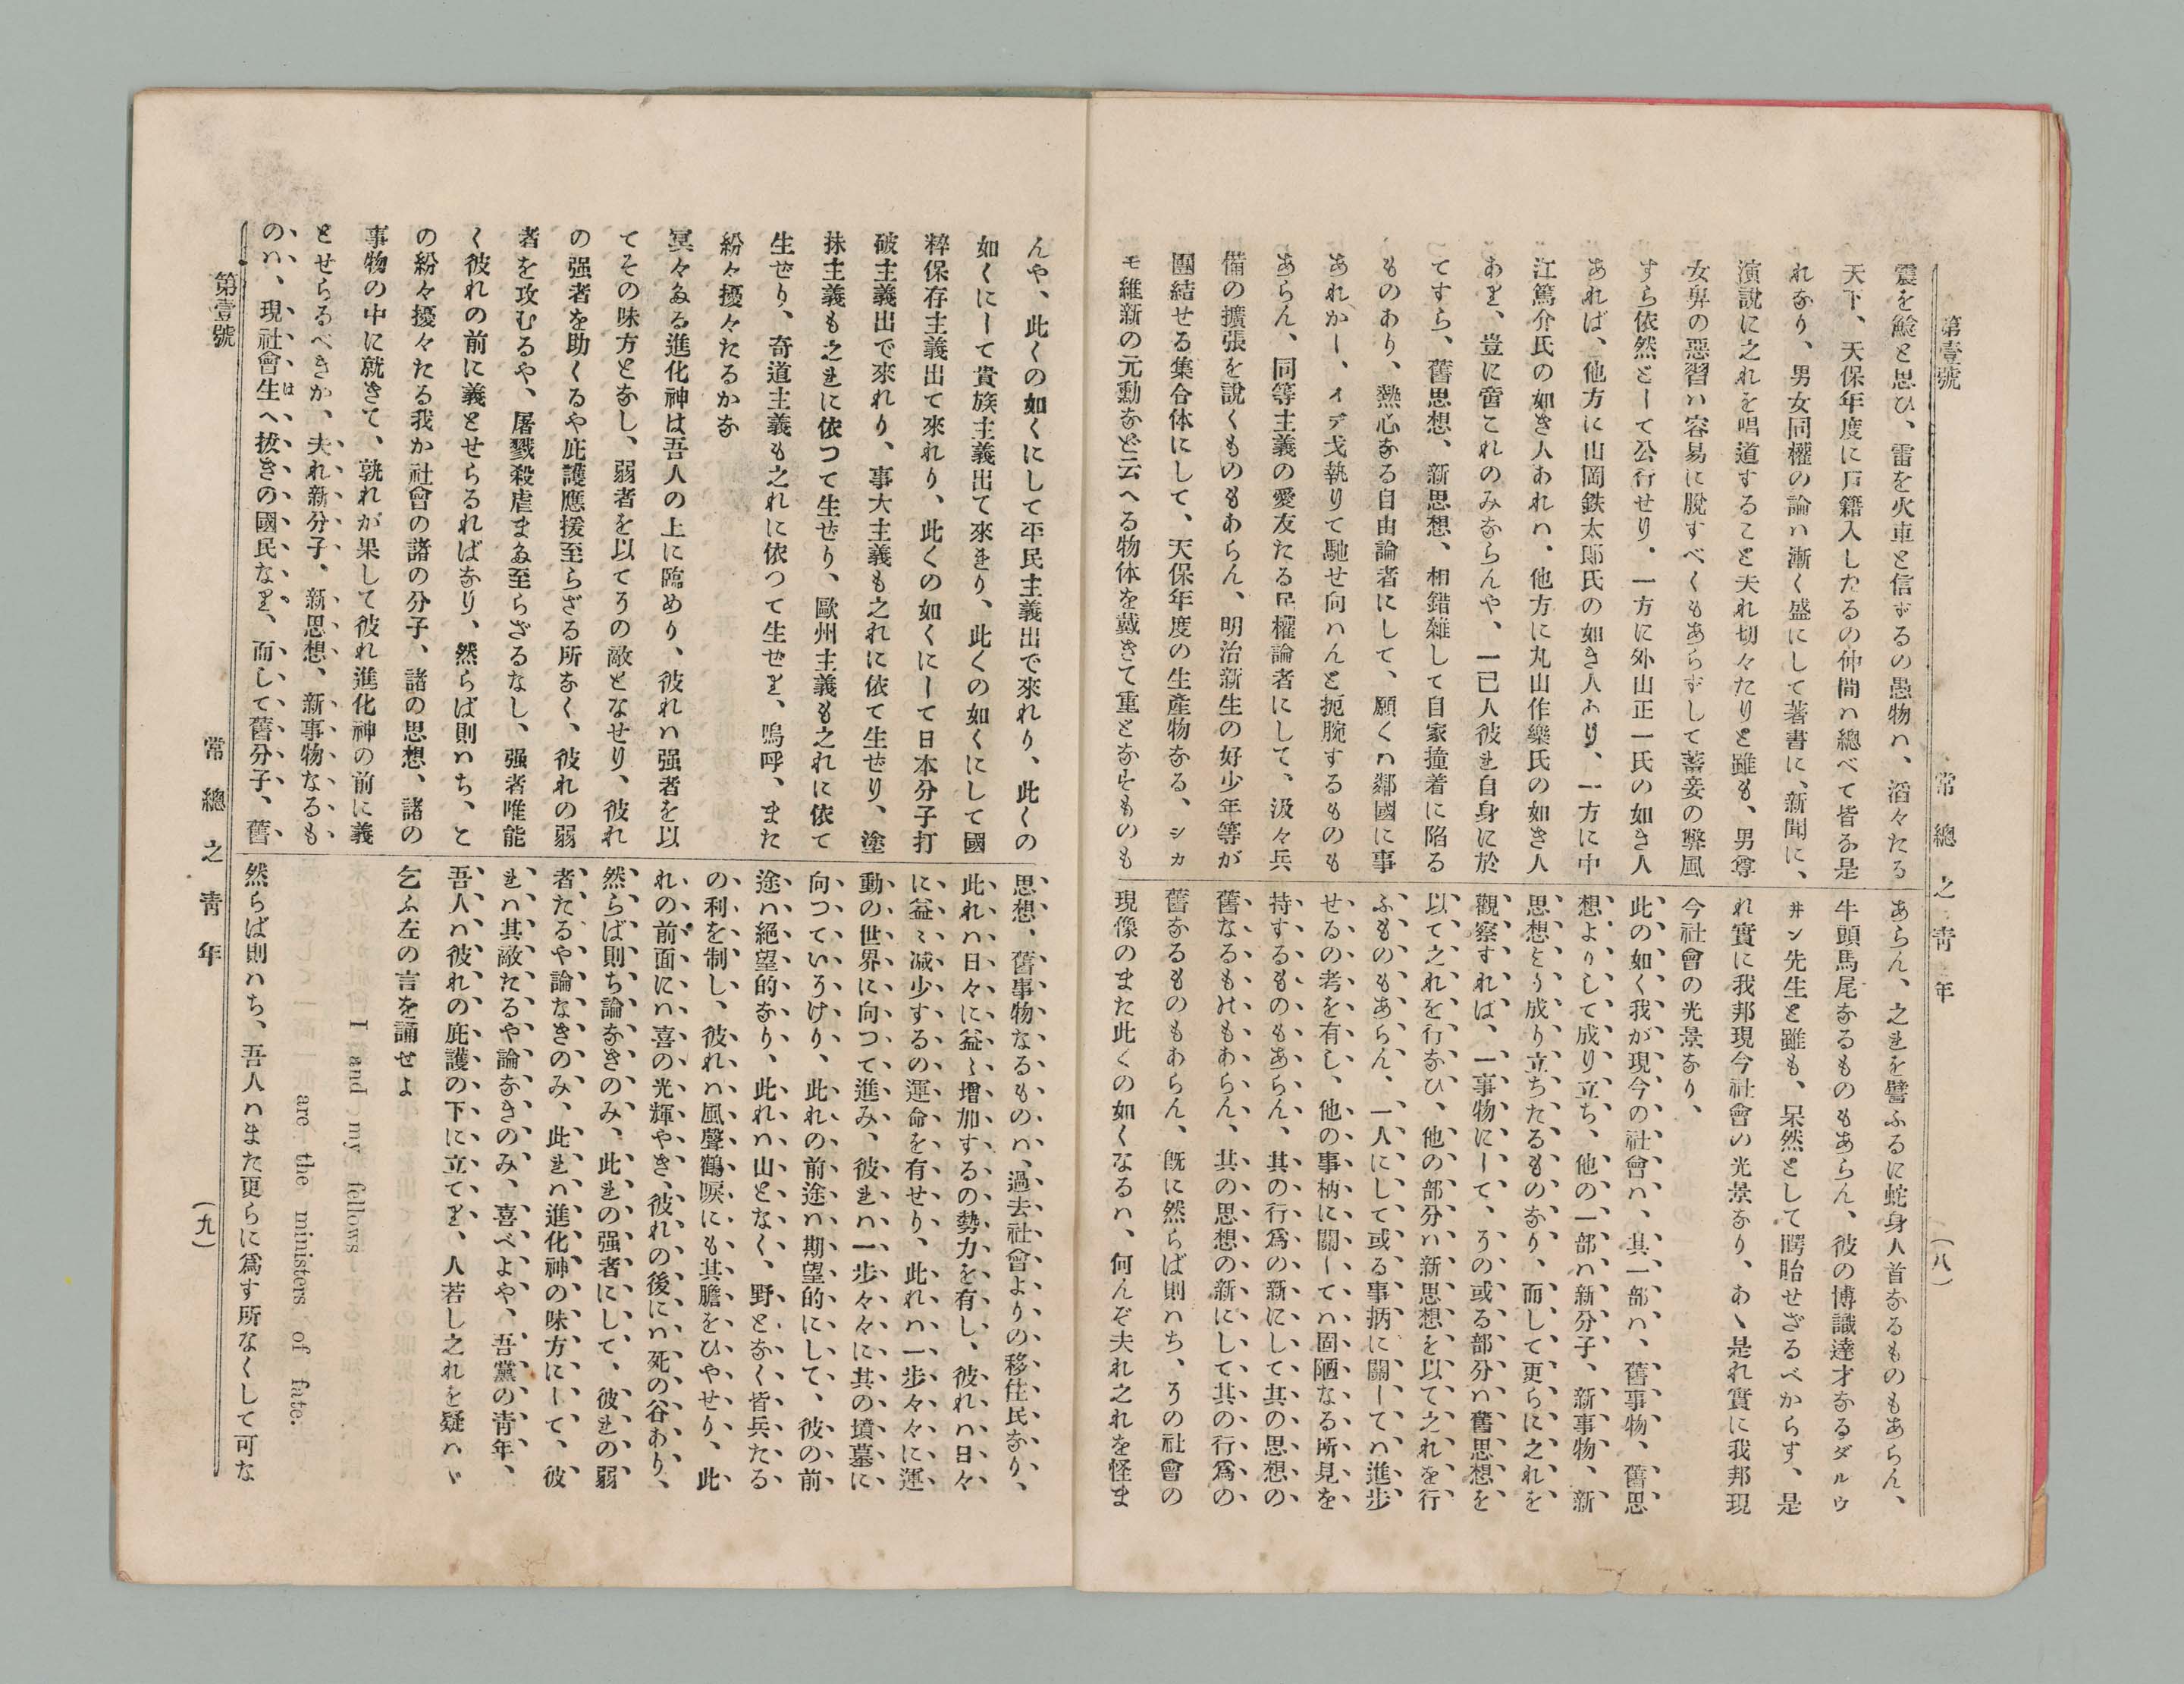 第壹號
常總之靑年
(八)
震を鯰と思ひ、雷を火車と信ずるの愚物ハ、滔々たる
天下、天保年度に戸籍入したるの仲間ハ總べて皆な是
れなり、男女同權の論ハ漸く盛にして著書に、新聞に、
演說に之れを唱道すること夫れ切々たりと雖も、男尊
女卑の惡習ハ容易に脫すべくもあらずして蓄妾の弊風
すら依然として公行せり、一方に外山正一氏の如き人
あれば、他方に山岡鉄太郎氏の如き人あり、一方に中
江篤介氏の如き人あれハ、他方に丸山作樂氏の如き人
あり、豈に啻これのみならんや、一己人彼れ自身に於
てすら、舊思想、新思想、相錯雜して自家撞着に陷る
ものあり、熱心なる自由論者にして、願くハ鄰國に事
あれかし、イデ戈執りて馳せ向ハんと扼腕するものも
あらん、同等主義の愛友たる民權論者にして、汲々兵
備の擴張を說くものもあらん、明治新生の好少年等が
團結せる集合体にして、天保年度の生產物なる、シカ
モ維新の元勳など云へる物体を戴きて重となすものも
あらん、之れを譬ふるに蛇身人首なるものもあらん、
牛頭馬尾なるものもあらん、彼の博識達才なるダルウ
井ン先生と雖も、呆然として愕眙せざるべからす、是
れ實に我邦現今社會の光景なり、あゝ是れ實に我邦現
今社會の光景なり、
此の如く我が現今の社會ハ、其一部ハ、舊事物、舊思
想よりして成り立ち、他の一部ハ新分子、新事物、新
思想とり成り立ちたるものなり、而して更らに之れを
觀察すれば、一事物にして、その或る部分ハ舊思想を
以て之れを行なひ、他の部分ハ新思想を以て之れを行
ふものもあらん、一人にして或る事柄に關してハ進步
せるの考を有し、他の事柄に關してハ固陋なる所見を
持するものもあらん、其の行爲の新にして其の思想の
舊なるものもあらん、其の思想の新にして其の行爲の
舊なるものもあらん、既に然らば則ハち、その社會の
現像のまた此くの如くなるハ、何んぞ夫れ之れを怪ま
んや、此くの如くにして平民主義出で來れり、此くの
如くにして貴族主義出て來れり、此くの如くにして國
粹保存主義出て來れり、此くの如くにして日本分子打
破主義出で來れり、事大主義も之れに依て生せり、塗
抹主義も之れに依つて生せり、歐州主義も之れに依て
生せり、奇道主義も之れに依つて生せり、嗚呼、また
紛々擾々たるかな
冥々なる進化神は吾人の上に臨めり、彼れハ强者を以
てその味方となし、弱者を以てその敵となせり、彼れ
の强者を助くるや庇護應援至らざる所なく、彼れの弱
者を攻むるや、屠戮殺虐また至らざるなし、强者唯能
く彼れの前に義とせらるればなり、然らば則ハち、と
の紛々擾々たる我か社會の諸の分子、諸の思想、諸の
事物の中に就きて、孰れが果して彼れ進化神の前に義
とせらるべきか、夫れ新分子、新思想、新事物なるも
のハ、現社會生へは抜きの國民なり、而して舊分子、舊
思想、舊事物なるものハ、過去社會よりの移住民なり、
此れハ日々に益〻增加するの勢力を有し、彼れハ日々
に益〻减少するの運命を有せり、此れハ一步々々に運
動の世界に向つて進み、彼れハ一步々々に其の墳墓に
向つていそけり、此れの前途ハ期望的にして、彼の前
途ハ絕望的なり、此れハ山となく、野となく皆兵たる
の利を制し、彼れハ風聲鶴唳にも其膽をひやせり、此
れの前面にハ喜の光輝やき、彼れの後にハ死の谷あり、
然らば則ち論なきのみ、此れの强者にして、彼れの弱
者たるや論なきのみ、此れハ進化神の味方にして、彼
れハ其敵たるや論なきのみ、喜べよや、吾黨の靑年、
吾人ハ彼れの庇護の下に立てり、人若し之れを疑ハヾ
乞ふ左の言を誦せよ
I and my fellows
are the ministers of fate.
然らば則ハち、吾人ハまた更らに爲す所なくして可な
第壹號
常總之靑年
(九)